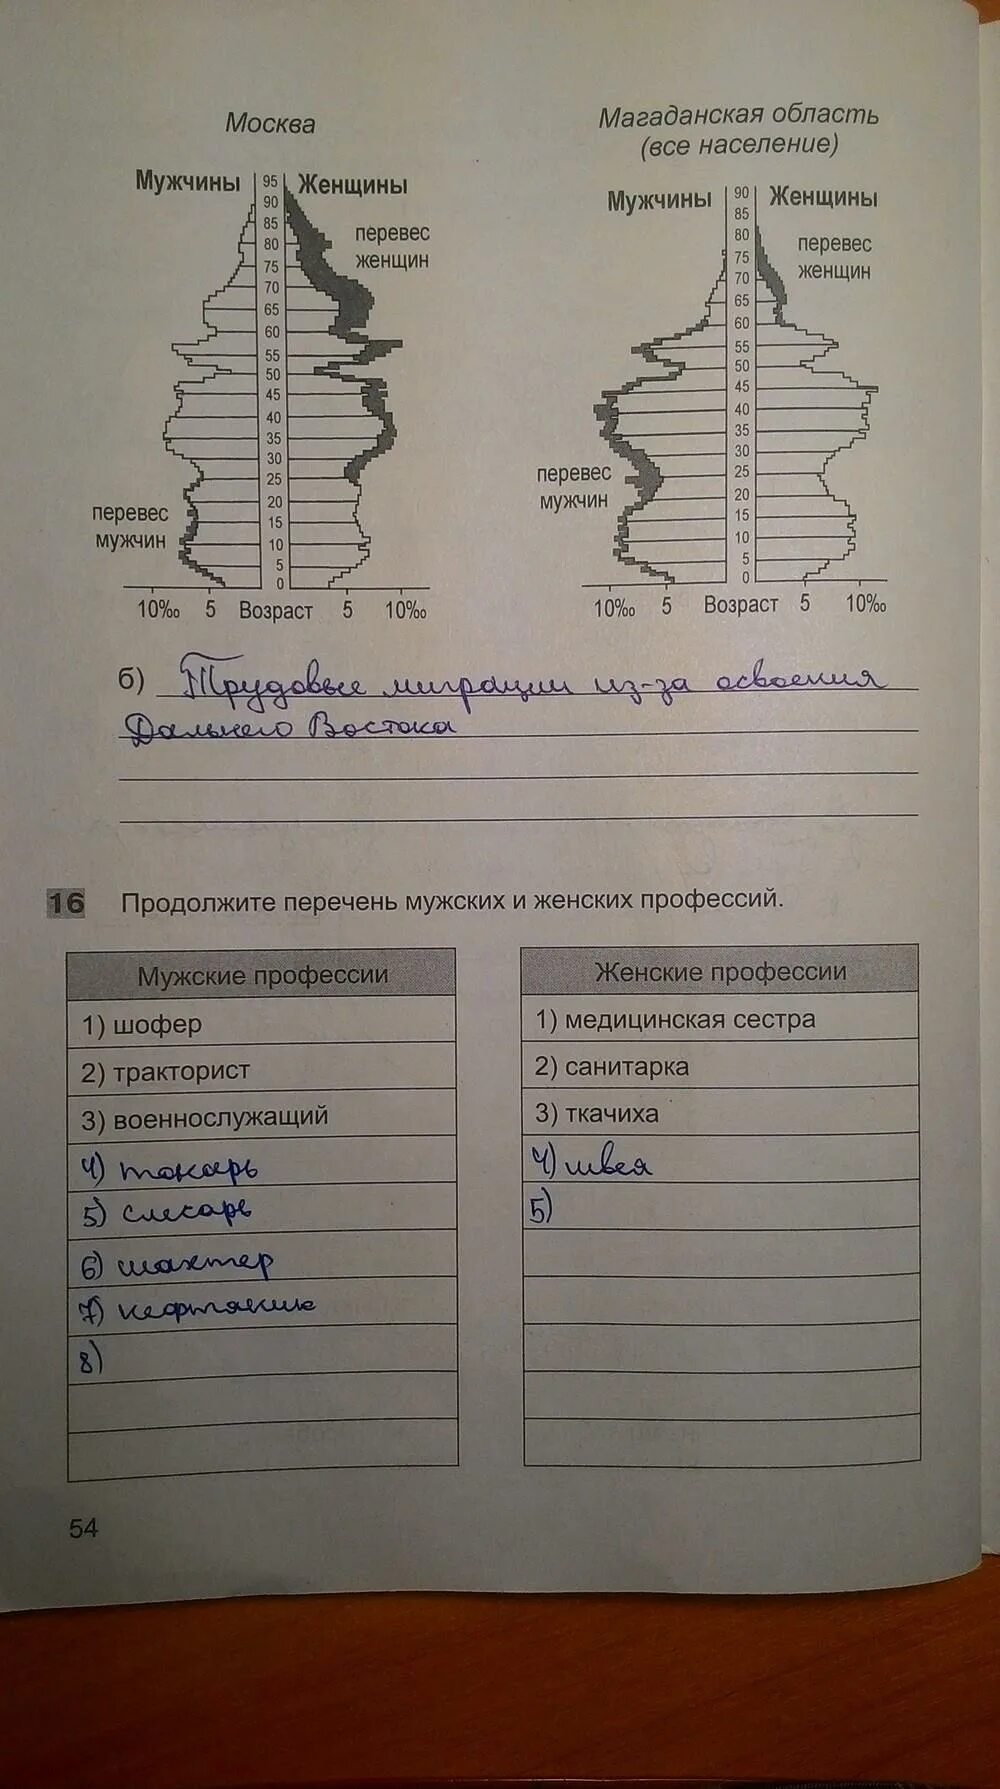 Москва
Магаданская область
(все население)
Мужчины 95 Женщины
90
85
80
75
70
65
60
55
50
45
40
35
30
25
20
15
10
5
0
перевес
женщин
перевес
мужчин
10‰ 5 Возраст 5 10‰
Мужчины 90 Женщины
85
80
75
70
65
60
55
50
45
40
35
30
25
20
15
10
5
0
перевес
женщин
перевес
мужчин
10‰ 5 Возраст 5 10‰
б) Трудовые миграции из-за освоения
Дальнего Востока
16 Продолжите перечень мужских и женских профессий.
Мужские профессии
1) шофер
2) тракторист
3) военнослужащий
4) токарь
5) слесарь
6) шахтер
7) нефтяник
8)
Женские профессии
1) медицинская сестра
2) санитарка
3) ткачиха
4) швея
5)
54